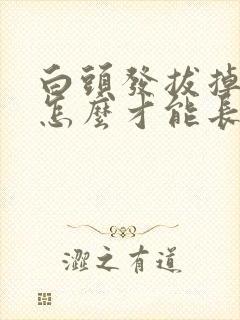 白頭發拔掉
怎麼才能長
澀之有道